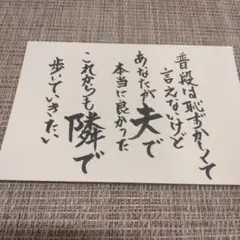 普段は恥ずかしくて
言えないけど
あなたが夫で
本当に良かった
これからも隣で
歩いていきたい